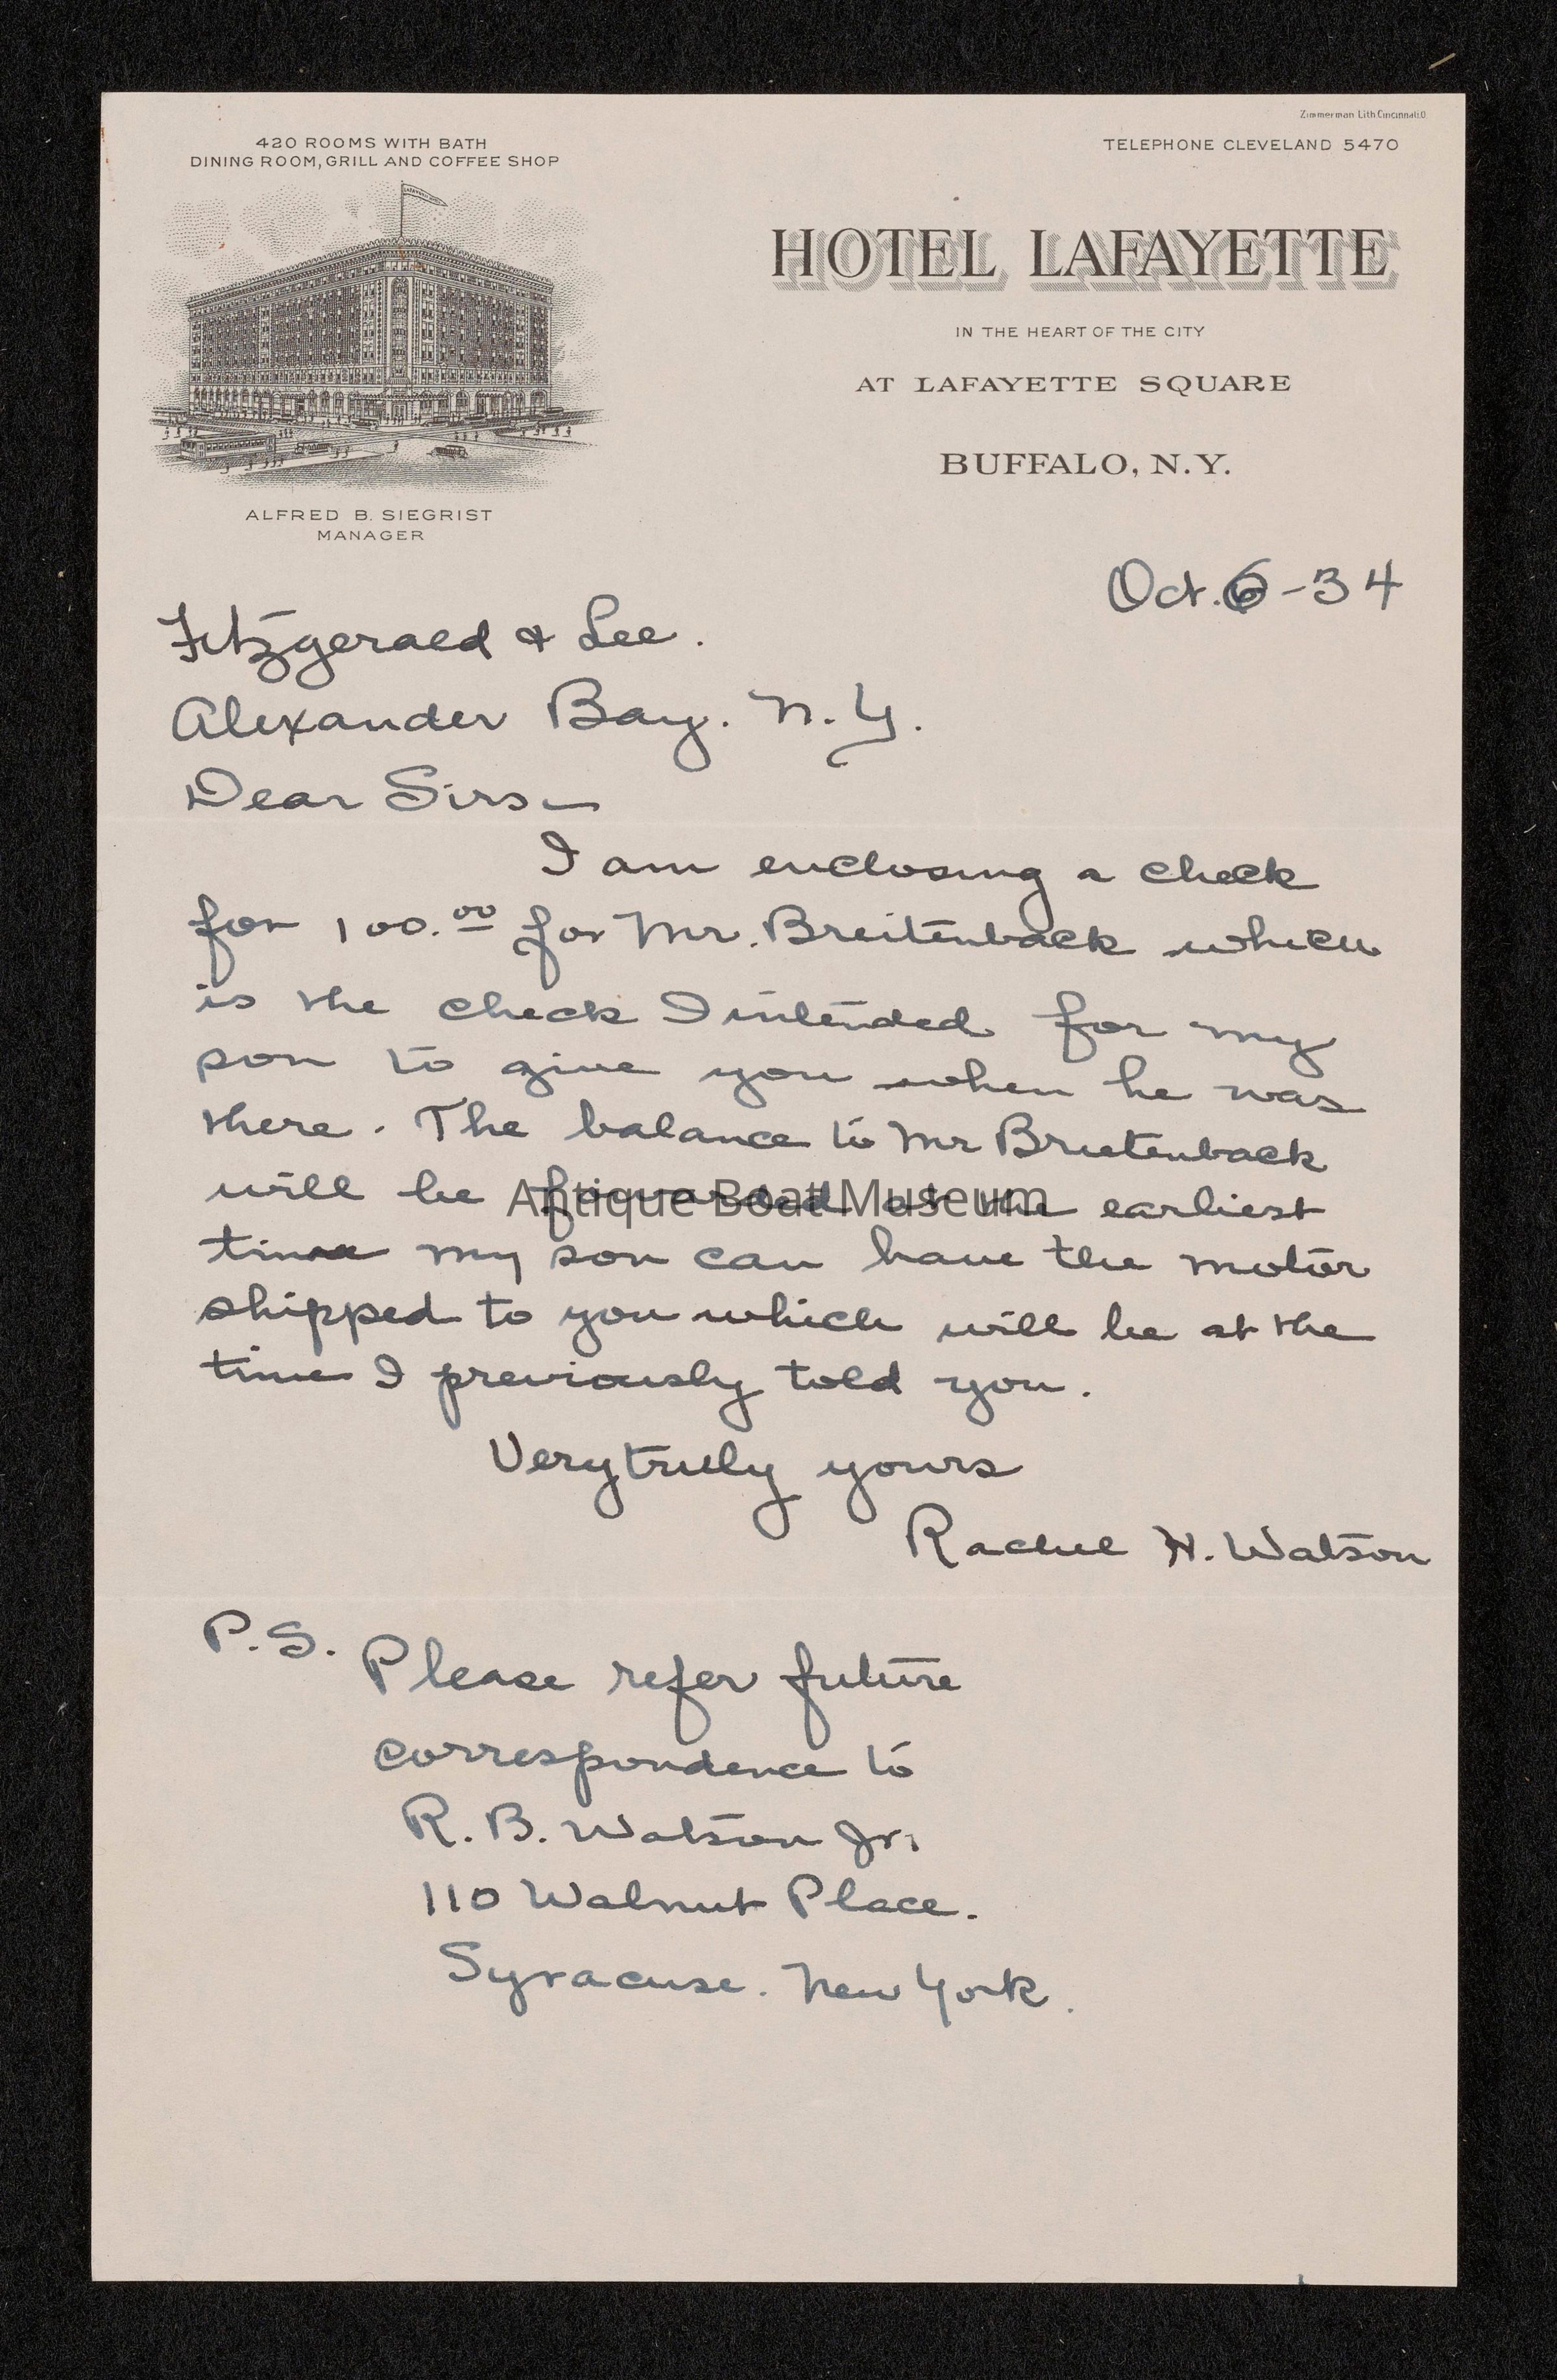 Zimmerman Lith.Cincinnati.O.
420 ROOMS WITH BATH
DINING ROOM, GRILL AND COFFEE SHOP
TELEPHONE CLEVELAND 5470
HOTEL LAFAYETTE
IN THE HEART OF THE CITY
AT LAFAYETTE SQUARE
BUFFALO, N.Y.
ALFRED B. SIEGRIST
MANAGER
Oct. 6-34
Fitzgerald & Lee.
Alexander Bay. N.Y.
Dear Sirs—
I am enclosing a check
for 100.00 for Mr. Breitenback which
is the check I intended for my
son to give you when he was
there. The balance to Mr Brietenback
will be forwarded at the earliest
Antique Boat Museum
time my son can have the motor
shipped to you which will be at the
time I previously told you.
Very truly yours
Rachel H. Watson
P.S. Please refer future
correspondence to
R. B. Watson Jr.
110 Walnut Place.
Syracuse. New York.